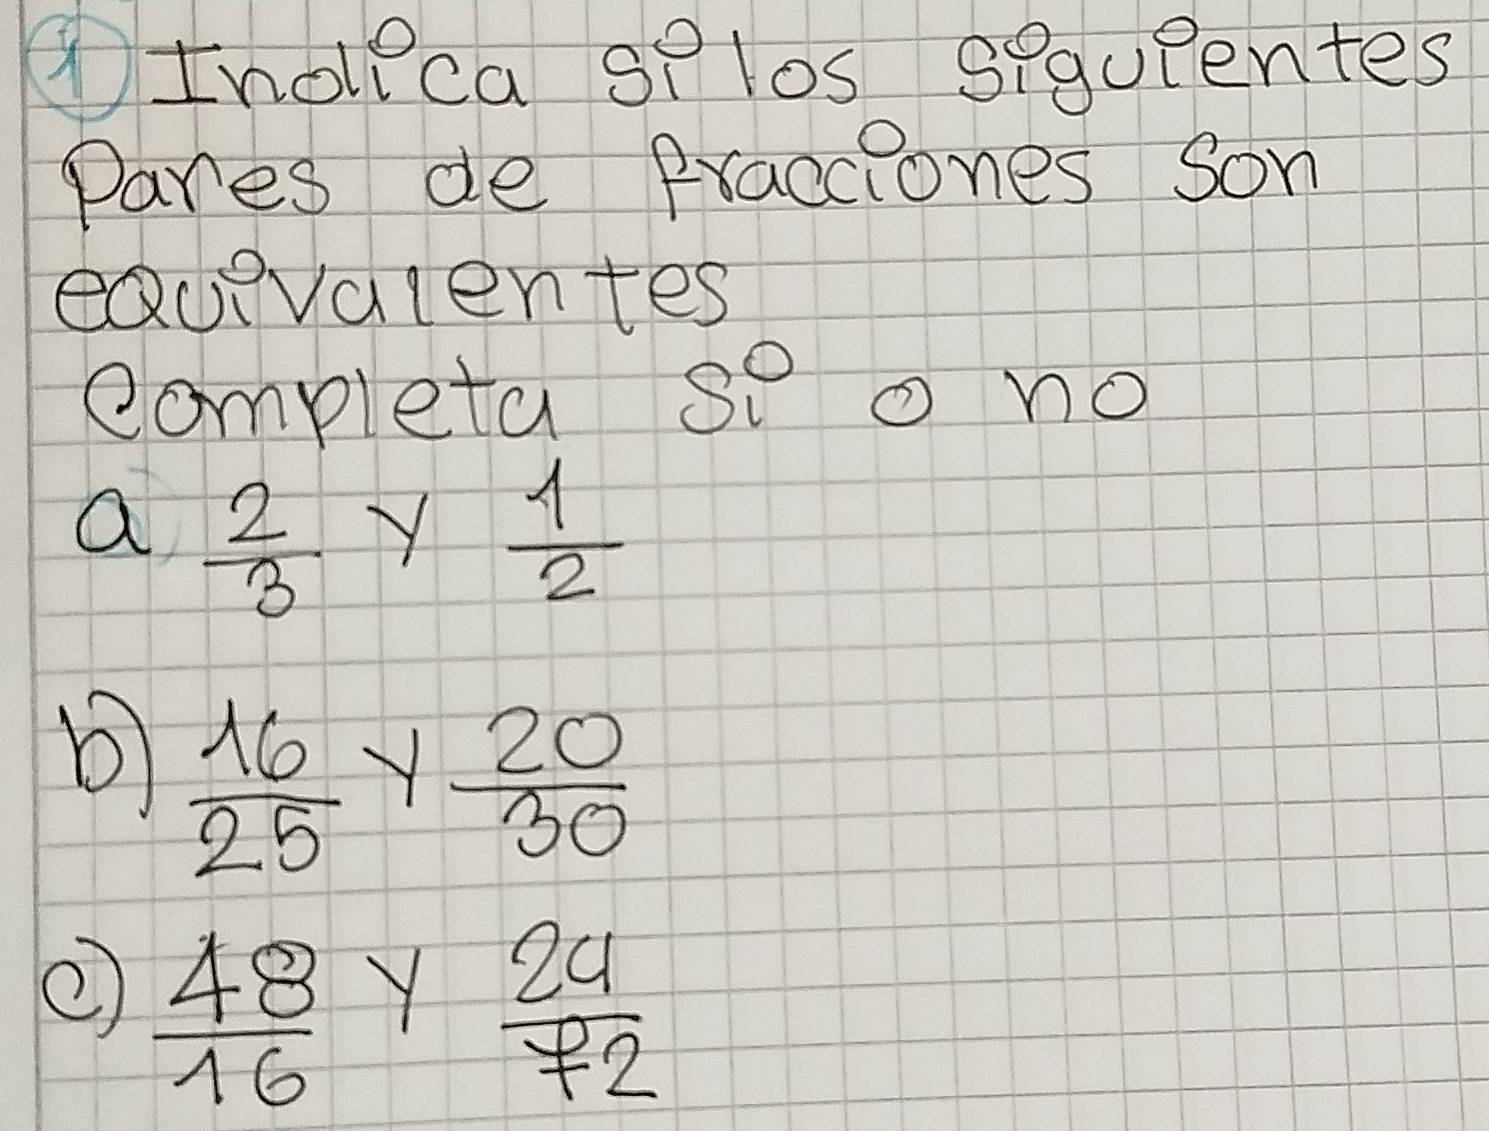 1 Indica si los siguientes
Pares de fracciones son
equivalentes
Completa si o no
a) 2/3 y 1/2
b) 16/25 y 20/30
c) 48/16 y 24/72